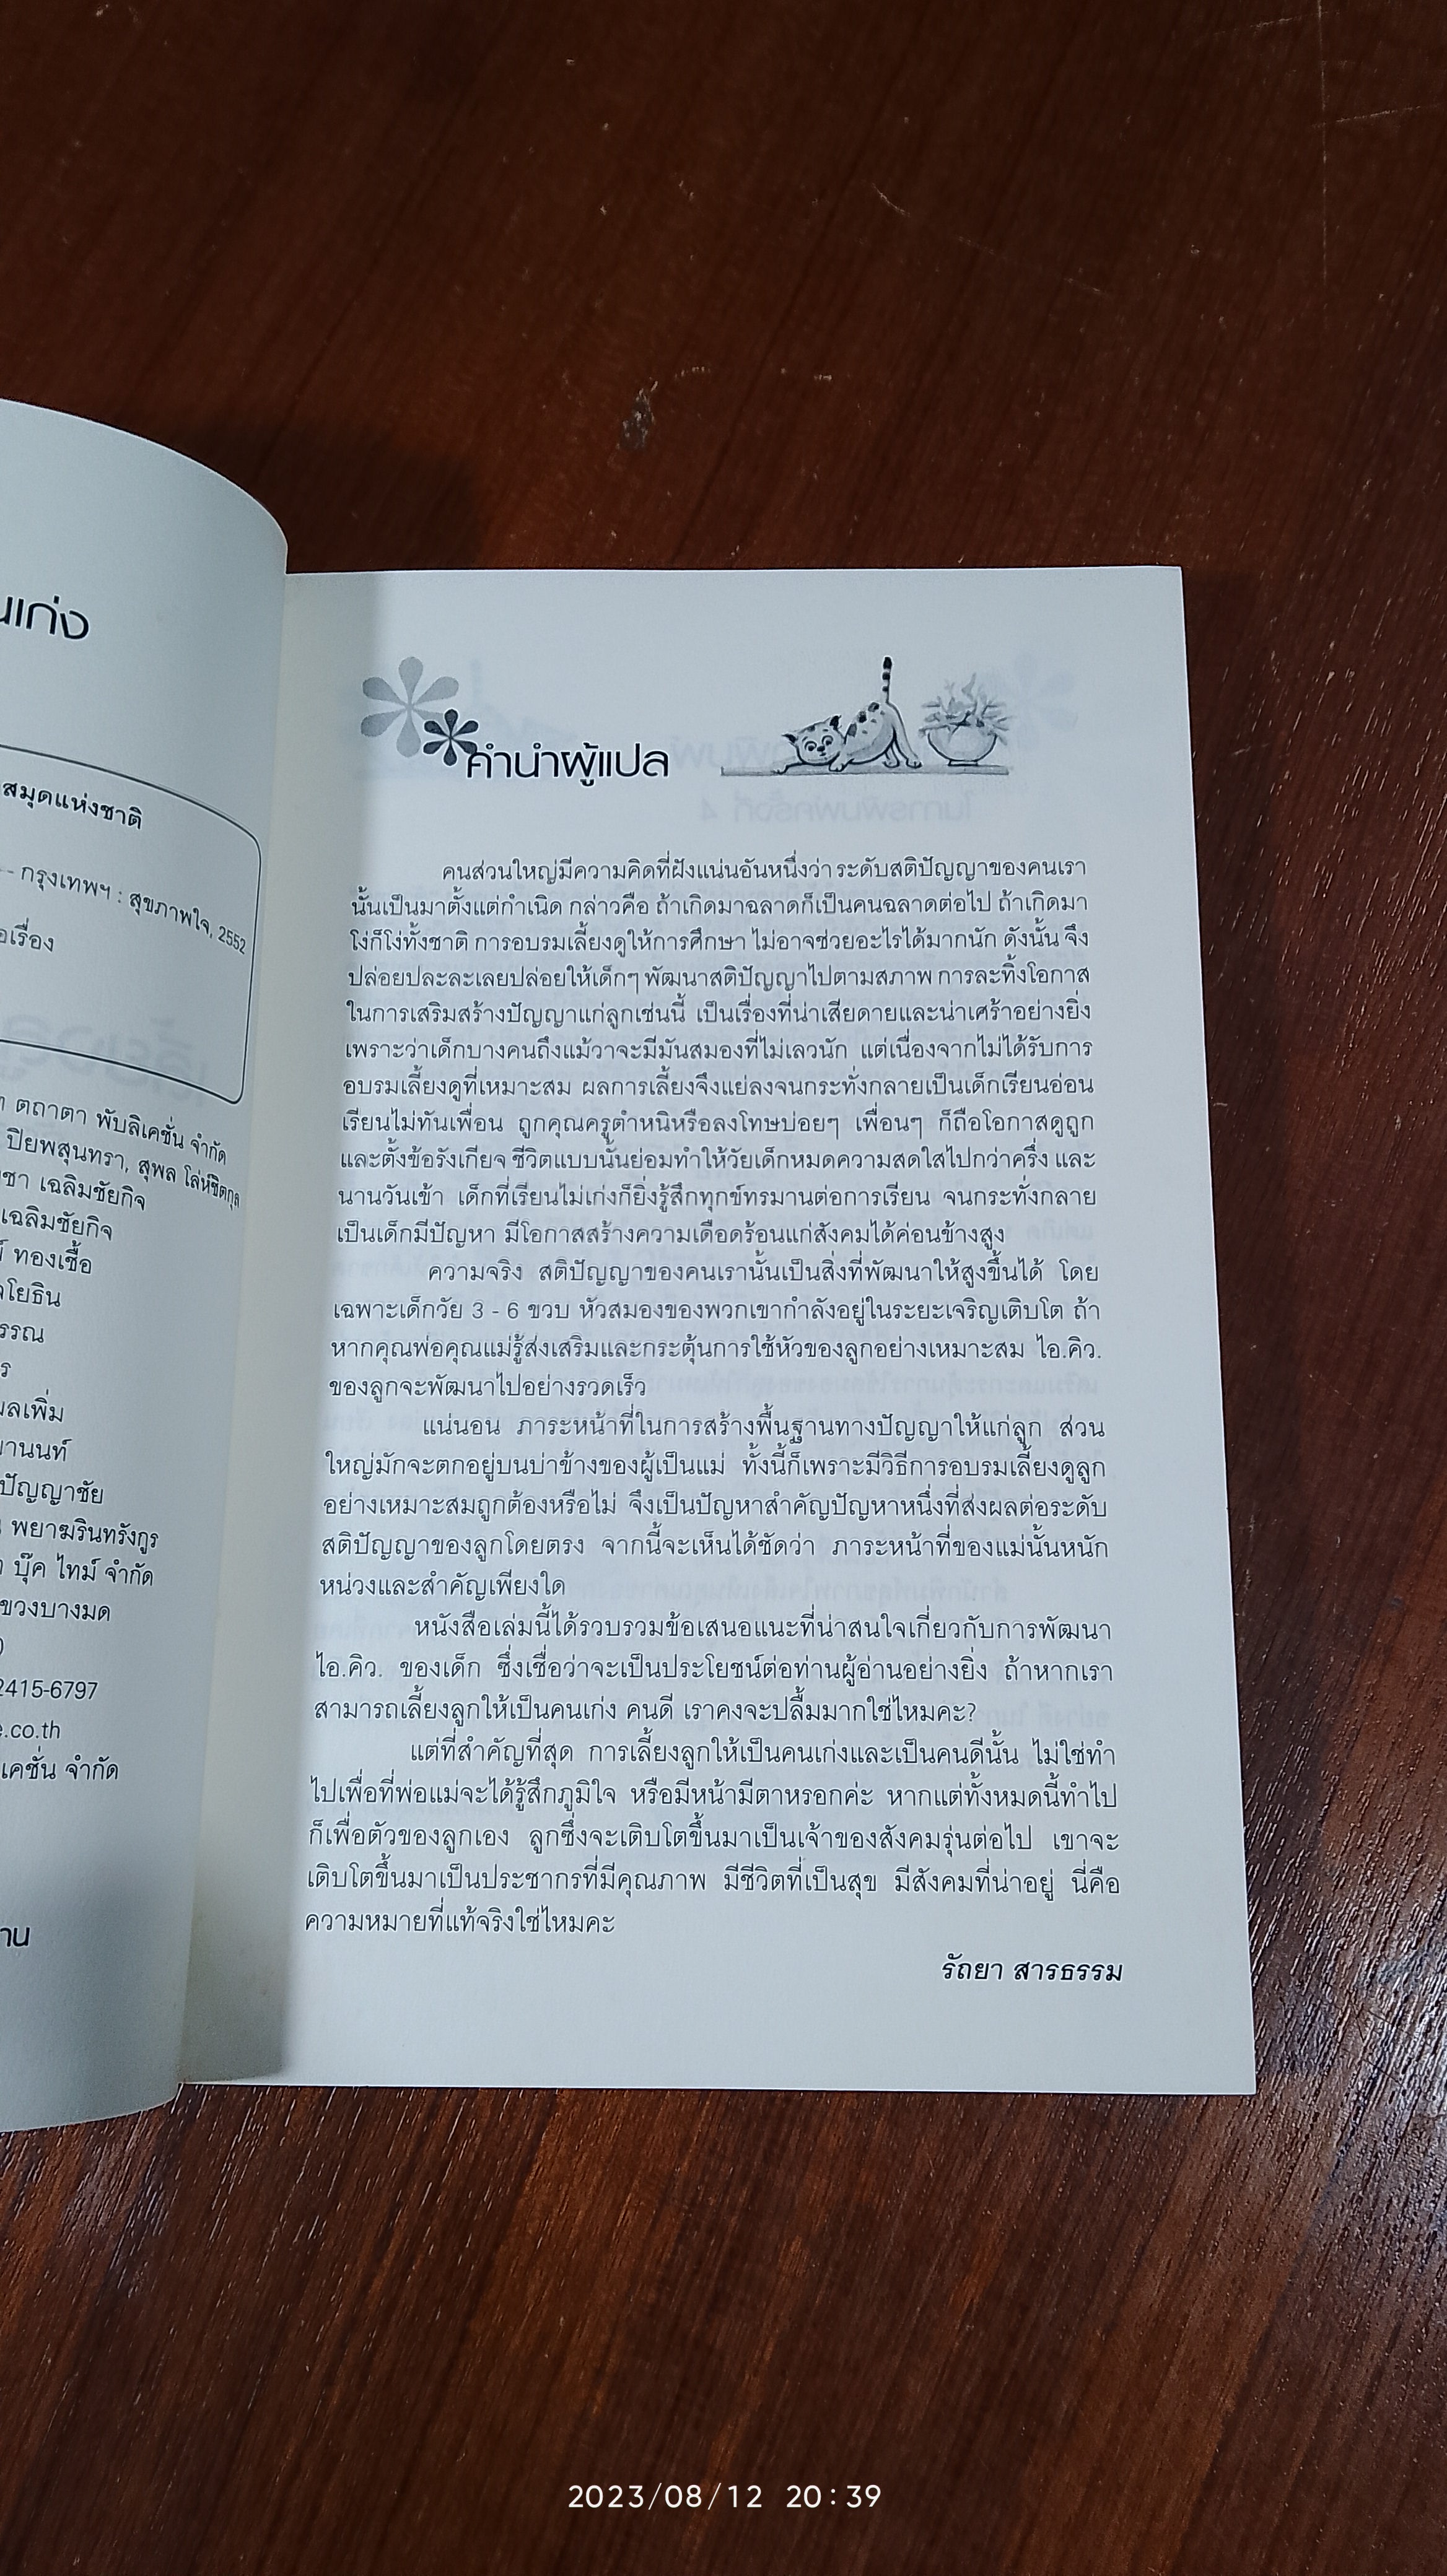 นเก่ง
สมุดแห่งชาติ
-- กรุงเทพฯ : สุขภาพใจ, 2552
อเรื่อง
ตถาตา พับลิเคชั่น จำกัด
ปิยพสุนทรา, สุพล โล่ห์ชิตกุล
ชา เฉลิมชัยกิจ
เฉลิมชัยกิจ
ทองเชื้อ
โยธิน
รรณ
ร
ลเพิ่ม
านนท์
ปัญญาชัย
พยาฆรินทรังกูร
บุ๊ค ไทม์ จำกัด
ขวงบางมด
2415-6797
.co.th
เคชั่น จำกัด
าน
คำนำผู้แปล
คนส่วนใหญ่มีความคิดที่ฝังแน่นอันหนึ่งว่า ระดับสติปัญญาของคนเรา
นั้นเป็นมาตั้งแต่กำเนิด กล่าวคือ ถ้าเกิดมาฉลาดก็เป็นคนฉลาดต่อไป ถ้าเกิดมา
โง่ก็โง่ทั้งชาติ การอบรมเลี้ยงดูให้การศึกษา ไม่อาจช่วยอะไรได้มากนัก ดังนั้น จึง
ปล่อยปละละเลยปล่อยให้เด็กๆ พัฒนาสติปัญญาไปตามสภาพ การละทิ้งโอกาส
ในการเสริมสร้างปัญญาแก่ลูกเช่นนี้ เป็นเรื่องที่น่าเสียดายและน่าเศร้าอย่างยิ่ง
เพราะว่าเด็กบางคนถึงแม้วาจะมีมันสมองที่ไม่เลวนัก แต่เนื่องจากไม่ได้รับการ
อบรมเลี้ยงดูที่เหมาะสม ผลการเลี้ยงจึงแย่ลงจนกระทั่งกลายเป็นเด็กเรียนอ่อน
เรียนไม่ทันเพื่อน ถูกคุณครูตำหนิหรือลงโทษบ่อยๆ เพื่อนๆ ก็ถือโอกาสดูถูก
และตั้งข้อรังเกียจ ชีวิตแบบนั้นย่อมทำให้วัยเด็กหมดความสดใสไปกว่าครึ่ง และ
นานวันเข้า เด็กที่เรียนไม่เก่งก็ยิ่งรู้สึกทุกข์ทรมานต่อการเรียน จนกระทั่งกลาย
เป็นเด็กมีปัญหา มีโอกาสสร้างความเดือดร้อนแก่สังคมได้ค่อนข้างสูง
ความจริง สติปัญญาของคนเรานั้นเป็นสิ่งที่พัฒนาให้สูงขึ้นได้ โดย
เฉพาะเด็กวัย 3 - 6 ขวบ หัวสมองของพวกเขากำลังอยู่ในระยะเจริญเติบโต ถ้า
หากคุณพ่อคุณแม่รู้ส่งเสริมและกระตุ้นการใช้หัวของลูกอย่างเหมาะสม ไอ.คิว.
ของลูกจะพัฒนาไปอย่างรวดเร็ว
แน่นอน ภาระหน้าที่ในการสร้างพื้นฐานทางปัญญาให้แก่ลูก ส่วน
ใหญ่มักจะตกอยู่บนบ่าข้างของผู้เป็นแม่ ทั้งนี้ก็เพราะมีวิธีการอบรมเลี้ยงดูลูก
อย่างเหมาะสมถูกต้องหรือไม่ จึงเป็นปัญหาสำคัญปัญหาหนึ่งที่ส่งผลต่อระดับ
สติปัญญาของลูกโดยตรง จากนี้จะเห็นได้ชัดว่า ภาระหน้าที่ของแม่นั้นหนัก
หน่วงและสำคัญเพียงใด
หนังสือเล่มนี้ได้รวบรวมข้อเสนอแนะที่น่าสนใจเกี่ยวกับการพัฒนา
ไอ.คิว. ของเด็ก ซึ่งเชื่อว่าจะเป็นประโยชน์ต่อท่านผู้อ่านอย่างยิ่ง ถ้าหากเรา
สามารถเลี้ยงลูกให้เป็นคนเก่ง คนดี เราคงจะปลื้มมากใช่ไหมคะ?
แต่ที่สำคัญที่สุด การเลี้ยงลูกให้เป็นคนเก่งและเป็นคนดีนั้น ไม่ใช่ทำ
ไปเพื่อที่พ่อแม่จะได้รู้สึกภูมิใจ หรือมีหน้ามีตาหรอกค่ะ หากแต่ทั้งหมดนี้ทำไป
ก็เพื่อตัวของลูกเอง ลูกซึ่งจะเติบโตขึ้นมาเป็นเจ้าของสังคมรุ่นต่อไป เขาจะ
เติบโตขึ้นมาเป็นประชากรที่มีคุณภาพ มีชีวิตที่เป็นสุข มีสังคมที่น่าอยู่ นี่คือ
ความหมายที่แท้จริงใช่ไหมคะ
รัถยา สารธรรม
2023/08/12 20:39